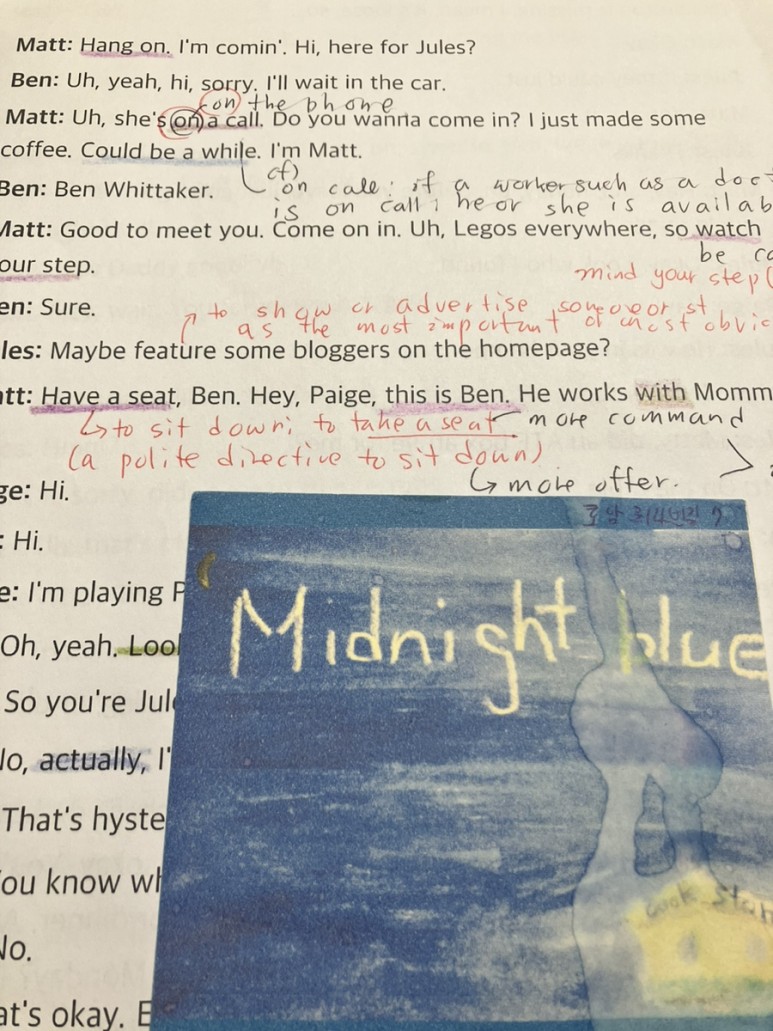 Matt: Hang on. I'm comin'. Hi, here for Jules?
Ben: Uh, yeah, hi, sorry. I'll wait in the car.
on the phone
Matt: Uh, she's on a call. Do you wanna come in? I just made some
coffee. Could be a while. I'm Matt.
cf)
Ben: Ben Whittaker.
on call: if a worker such as a doct
is on call; he or she is availab
Matt: Good to meet you. Come on in. Uh, Legos everywhere, so watch
be ca
our step.
mind your step(
en: Sure.
to show or advertise someone or st
as the most important or most obvio
les: Maybe feature some bloggers on the homepage?
att: Have a seat, Ben. Hey, Paige, this is Ben. He works with Momm
to sit down; to take a seat more command
(a polite directive to sit down)
more offer.
ge: Hi.
: Hi.
e: I'm playing P
Oh, yeah. Lool
So you're Jule
No, actually, I'
That's hyste
You know wh
No.
at's okay. E
Midnight blue